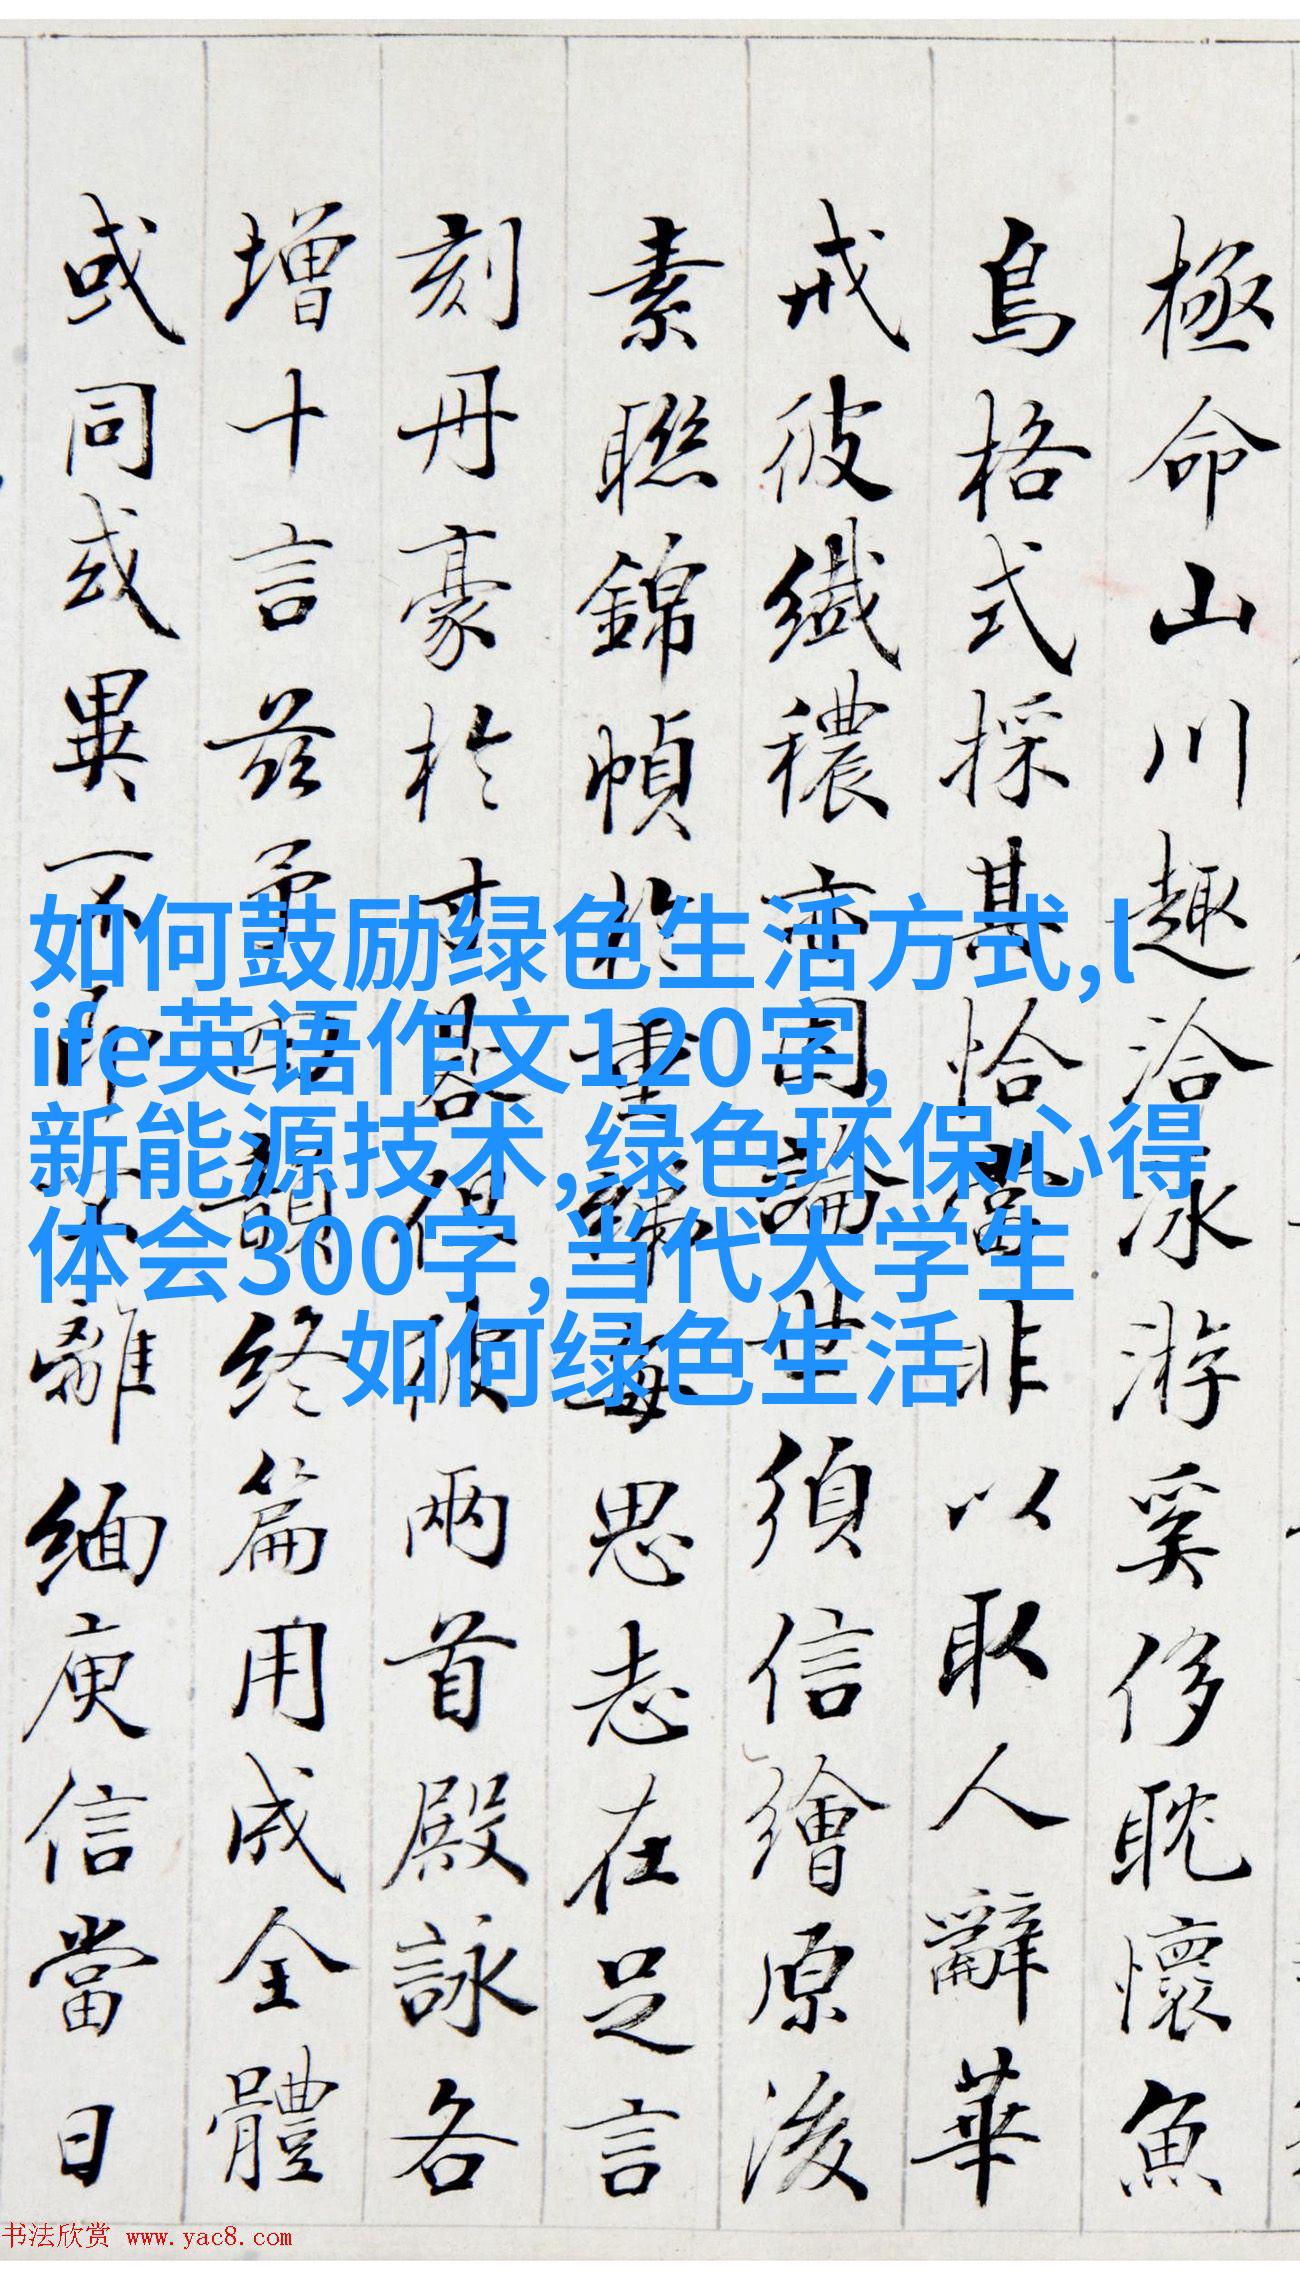 如何鼓励绿色生活方式,l
ife英语作文120字,
新能源技术,绿色环保心得
体会300字,当代大学生
如何绿色生活
極命山川趣洽冰游奚侈耽懷魚
鳥格式採其恰當非以取人辭華
戒彼纖穠亦同論世須信繪原後
素聯錦幀於每思志在足言
刻丹豪於古器但披兩首殿詠各
增十言茲予四韻終篇用成全體
或同或異不即不離緬庾信當日
书法欣赏 www.yac8.com